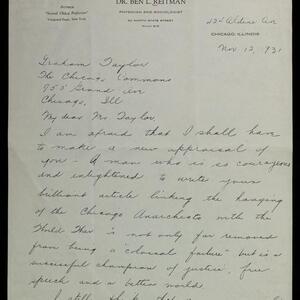 DR. BEN L. REITMAN
PHYSICIAN AND SOCIOLOGIST
Author
"Second Oldest Profession"
Vanguard Press, New York
CHICAGO, ILLINOIS
Nov 12, 931
Graham Taylor
The Chicago Commons
955 Grand Av
Chicago, Ill
My dear Mr Taylor.
I am afraid that I shall have
to make a new appraisal of
you - A man who is so courageous
and enlightened to write your
brilliant article linking the hanging
of the Chicago Anarchists with the
World War is not only far removed
from being a "colossal failure" but is a
successful champion of justice, free
speech and a better world
I still